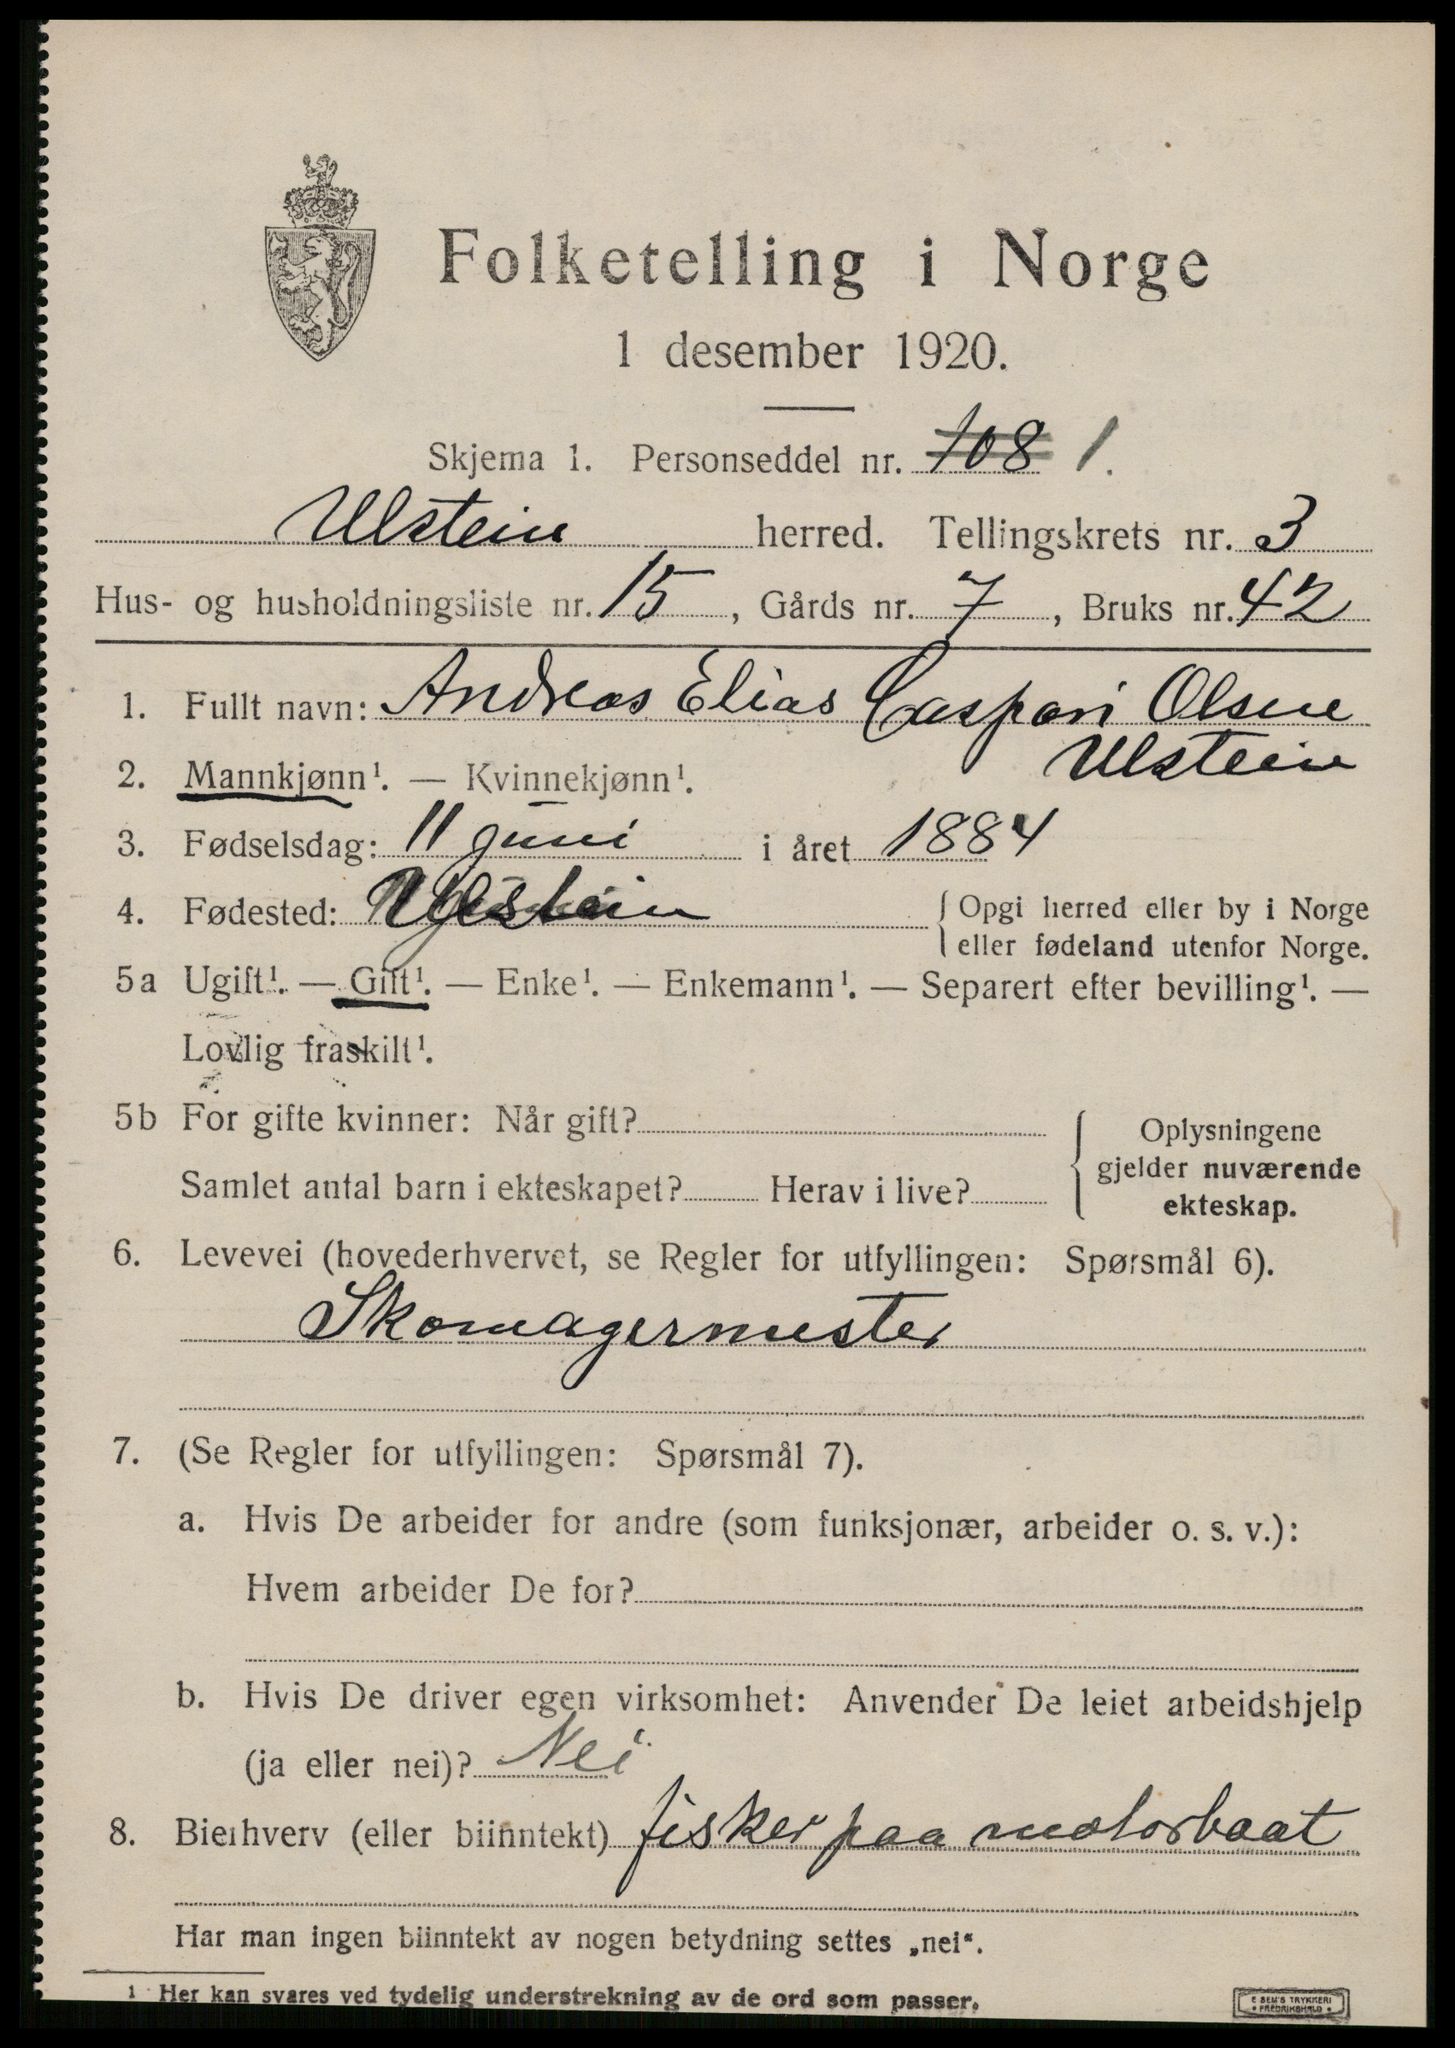 Folketelling i Norge
1 desember 1920.
Skjema 1. Personseddel nr. 108 1.
Ulstein herred. Tellingskrets nr. 3
Hus- og husholdningsliste nr. 15, Gårds nr. 7, Bruks nr. 42
1. Fullt navn: Andreas Elias Caspari Olsene
Ulstein
2. Mannkjønn¹. — Kvinnekjønn¹.
3. Fødselsdag: 11 juni i året 1884
4. Fødested: Ulstein { Opgi herred eller by i Norge
eller fødeland utenfor Norge.
5a Ugift¹. — Gift¹. — Enke¹. — Enkemann¹. — Separert efter bevilling¹. —
Lovlig fraskilt¹.
5b For gifte kvinner: Når gift? { Oplysningene
gjelder nuværende
Samlet antal barn i ekteskapet? Herav i live? ekteskap.
6. Levevei (hovederhvervet, se Regler for utfyllingen: Spørsmål 6).
Skomagermester
7. (Se Regler for utfyllingen: Spørsmål 7).
a. Hvis De arbeider for andre (som funksjonær, arbeider o. s. v.):
Hvem arbeider De for?
b. Hvis De driver egen virksomhet: Anvender De leiet arbeidshjelp
(ja eller nei)? Nei
8. Bierhverv (eller biinntekt) fisker paa motorbaat
Har man ingen biinntekt av nogen betydning settes „nei“.
1 Her kan svares ved tydelig understrekning av de ord som passer.
E SEM'S TRYKKERI
FREDRIKSHALD